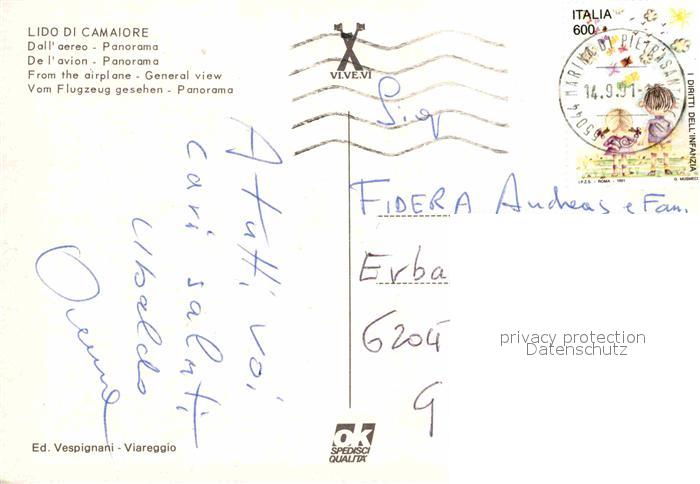 LIDO DI CAMAIORE
Dall'aereo - Panorama
De l'avion - Panorama
From the airplane - General view
Vom Flugzeug gesehen - Panorama
VI.VE.VI
ITALIA
600
I DIRITTI DELL'INFANZIA
I.P.Z.S. - ROMA - 1991
55044 MARINA DI PIETRASANTA
14.9.91
Sig
FIDERA Andreas e Fam.
Erba
6204
G
A tutti voi
cari saluti
Ubaldo
privacy protection
Datenschutz
Ed. Vespignani - Viareggio
ok
SPEDISCI
QUALITÀ